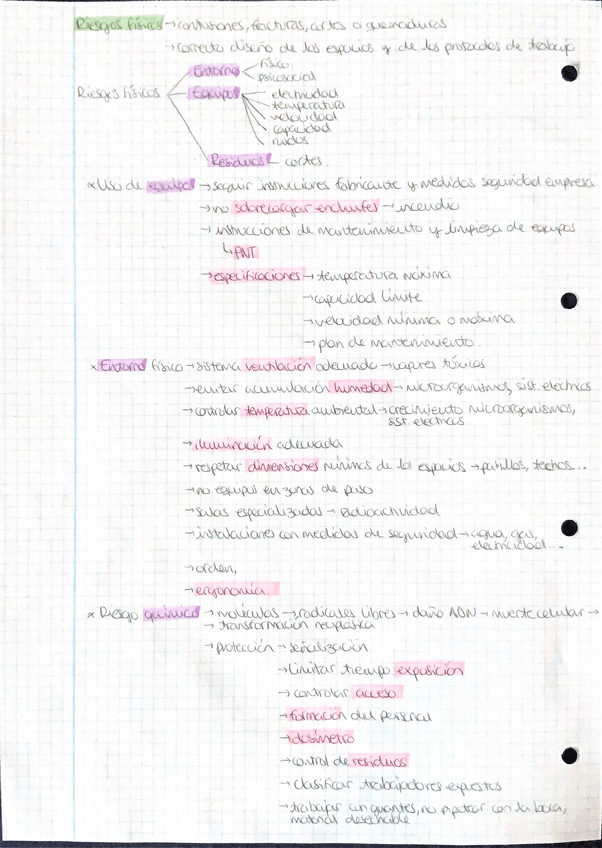 Riesgos físicos → contusiones, fracturas, cortes o quemaduras
→ correcto diseño de los espacios y de los protocolos de trabajo
Riesgos físicos
Entorno
físico
psicosocial
Equipos
electricidad
temperatura
velocidad
capacidad
ruidos
Residuos cortes
* Uso de equipos → seguir instrucciones fabricante y medidas seguridad empresa
→ no sobrecargar enchufes → incendio
→ instrucciones de mantenimiento y limpieza de equipos
↳ PNT
→ especificaciones → temperatura máxima
→ capacidad límite
→ velocidad mínima o máxima
→ plan de mantenimiento.
* Entorno físico → sistema ventilación adecuado → vapores tóxicos
→ evitar acumulación humedad → microorganismos, sist. electricos
→ controlar temperatura ambiental → crecimiento microorganismos,
sist. electricos
→ iluminación adecuada
→ respetar dimensiones mínimas de los espacios → pasillos, techos...
→ no equipos en zonas de paso
→ salas especializadas → Radioactividad
→ instalaciones con medidas de seguridad → agua, gas,
electricidad...
→ orden,
→ ergonomía.
* Riesgo químico → moléculas → radicales libres → daño ADN → muerte celular →
→ transformación neoplásica
→ protección → señalización
→ Limitar tiempo exposición
→ controlar acceso
→ formación del personal
→ dosímetro
→ control de residuos
→ clasificar trabajadores expuestos
→ trabajar con guantes, no pipetear con la boca,
material desechable